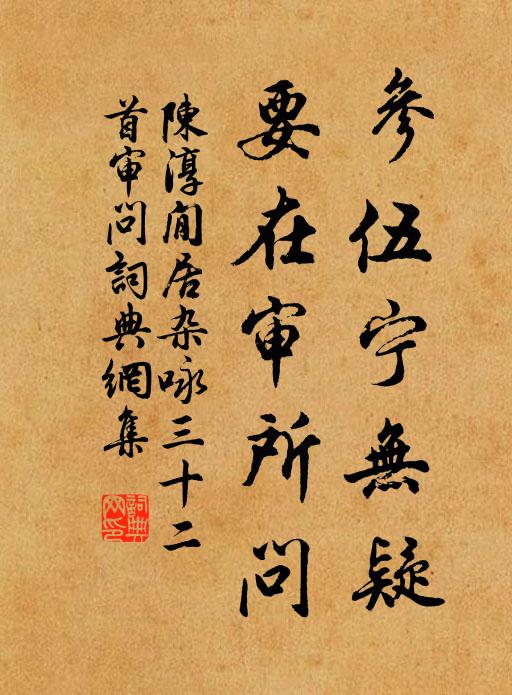 參伍宁無疑
要在审所問
陳淳閒居杂咏三十二
首审問詞典網集
詞典
网印